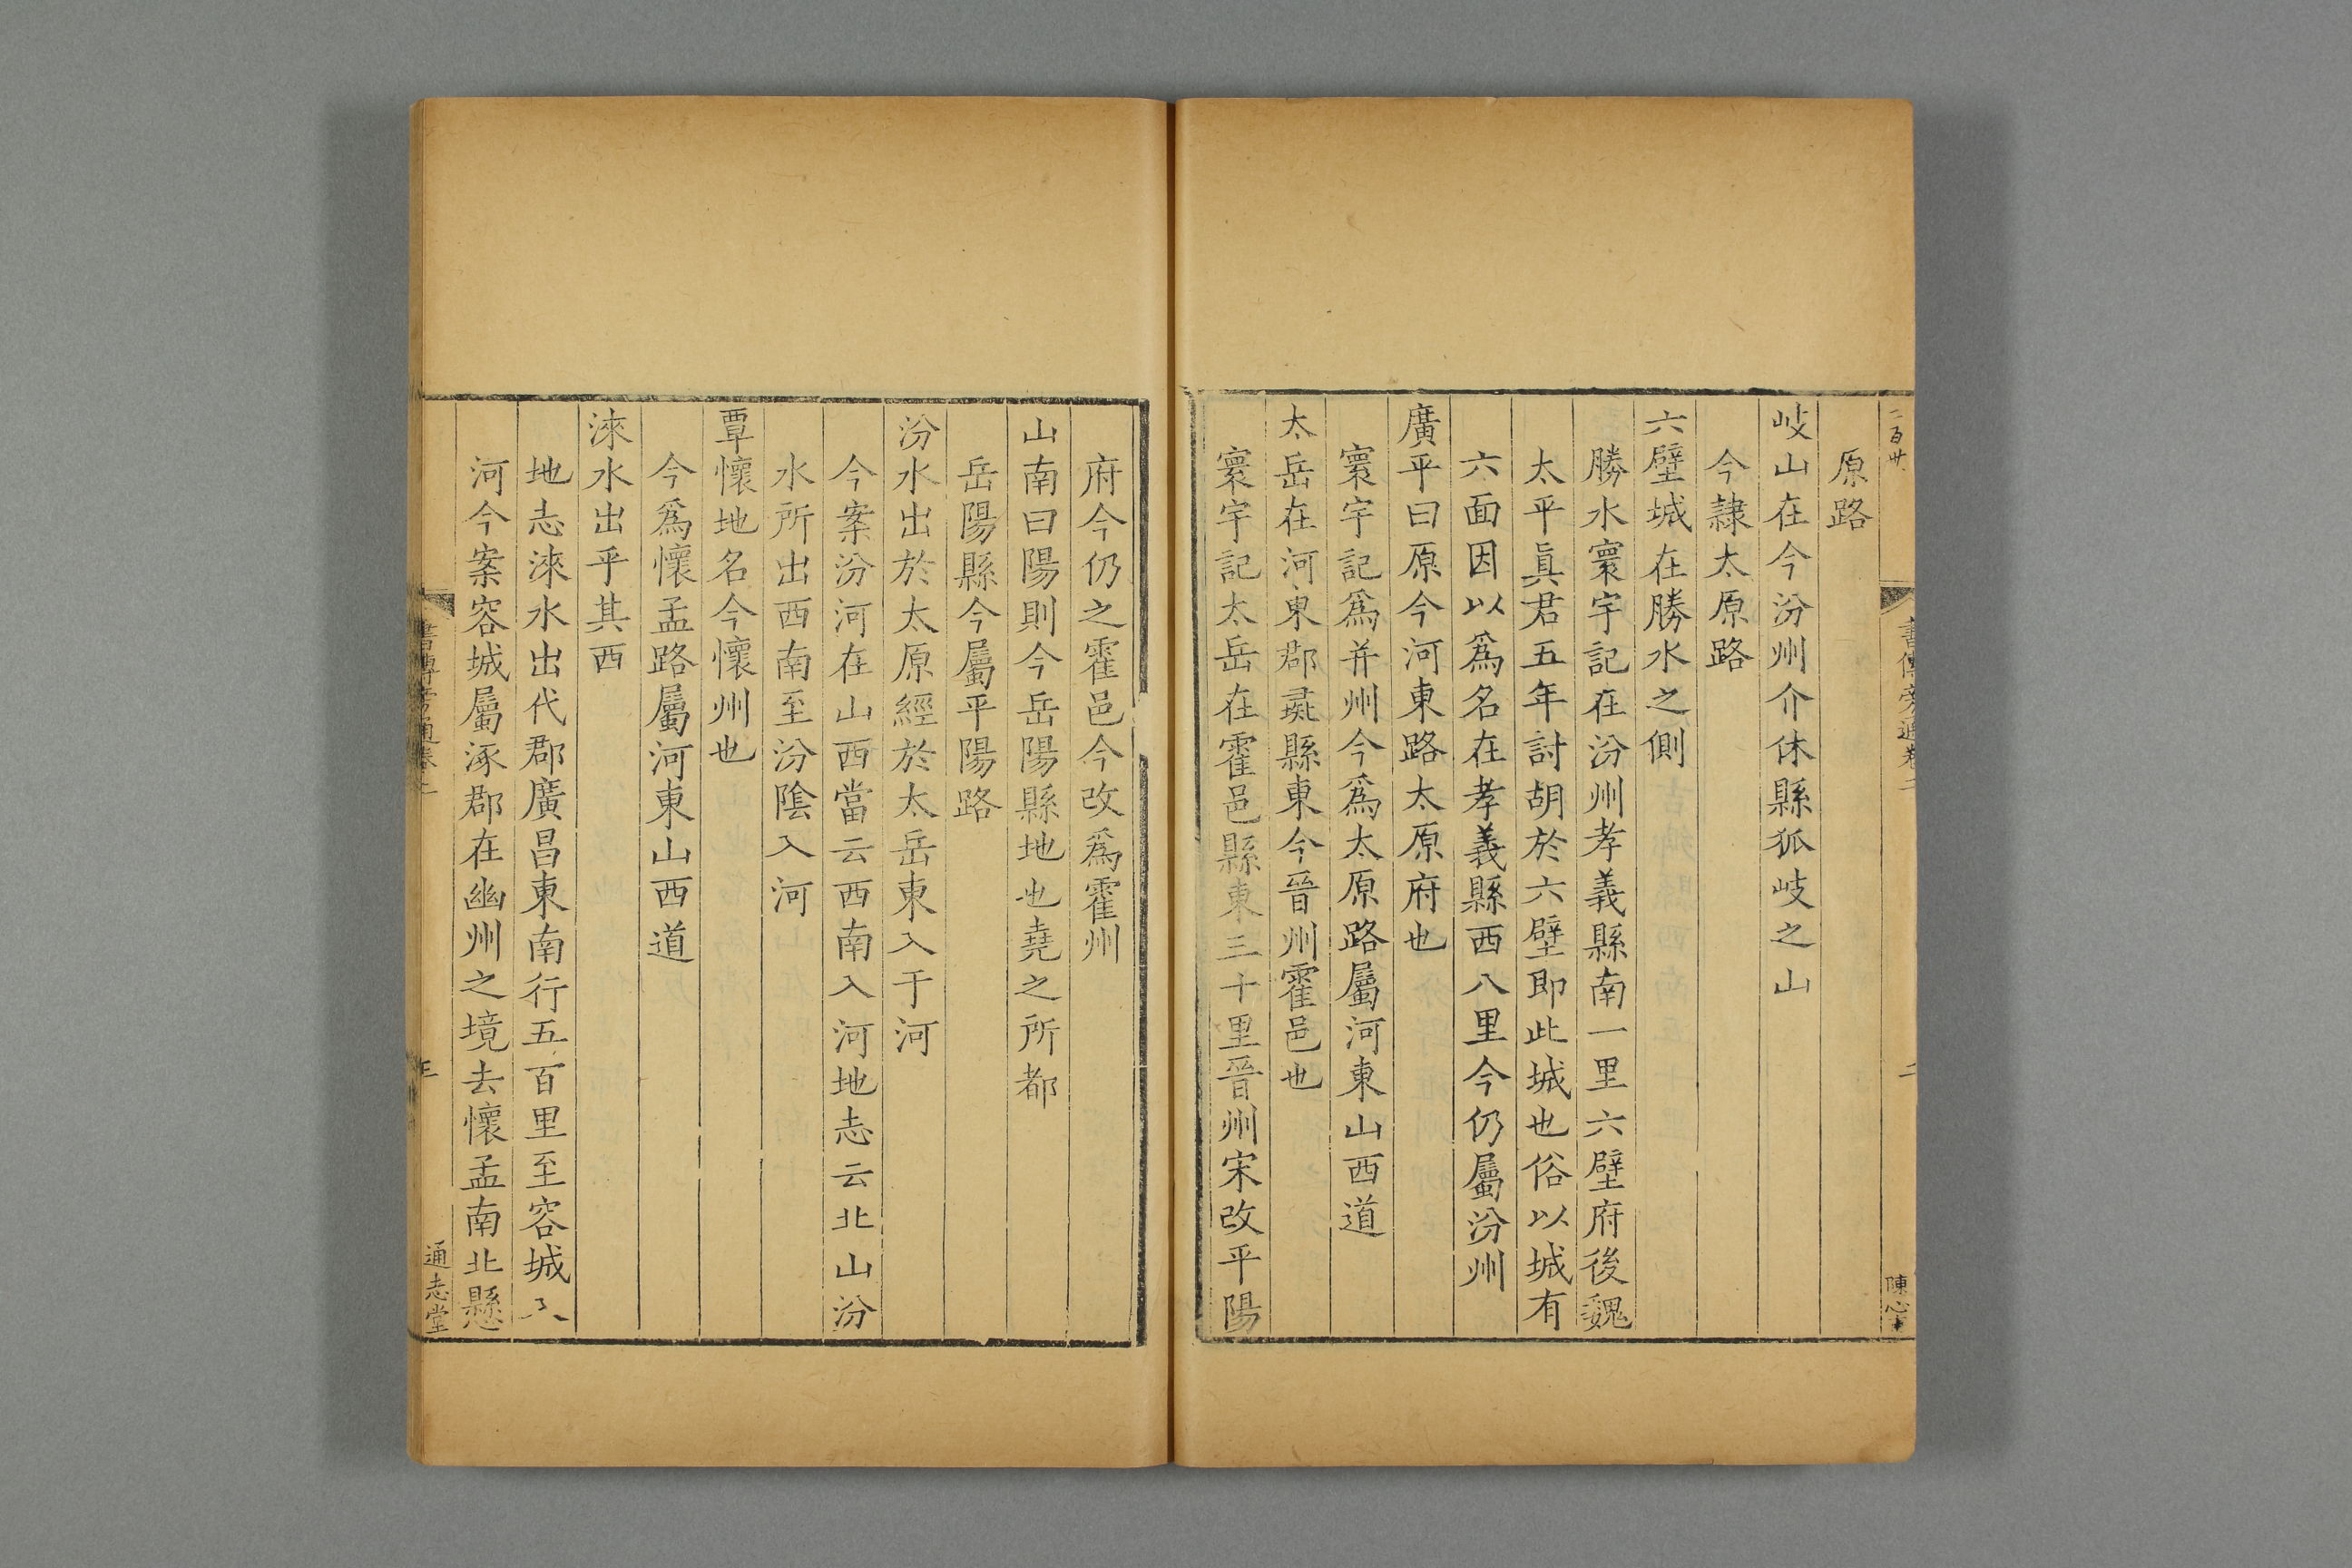 二百廿
書傳旁通卷二
二
陳
原路
岐山在今汾州介休縣狐岐之山
今隸太原路
六壁城在勝水之側
勝水寰宇記在汾州孝義縣南一里六壁府後魏
太平眞君五年討胡於六壁即此城也俗以城有
六面因以爲名在孝義縣西八里今仍屬汾州
廣平曰原今河東路太原府也
寰宇記爲并州今爲太原路屬河東山西道
太岳在河東郡彘縣東今晉州霍邑也
寰宇記太岳在霍邑縣東三十里晉州宋改平陽
府今仍之霍邑今改爲霍州
山南曰陽則今岳陽縣地也堯之所都
岳陽縣今屬平陽路
汾水出於太原經於太岳東入于河
今案汾河在山西當云西南入河地志云北山汾
水所出西南至汾隂入河
覃懷地名今懷州也
今爲懷孟路屬河東山西道
淶水出乎其西
地志淶水出代郡廣昌東南行五百里至容城入
河今案容城屬涿郡在幽州之境去懷孟南北懸
書傳旁通卷二
三
通志堂